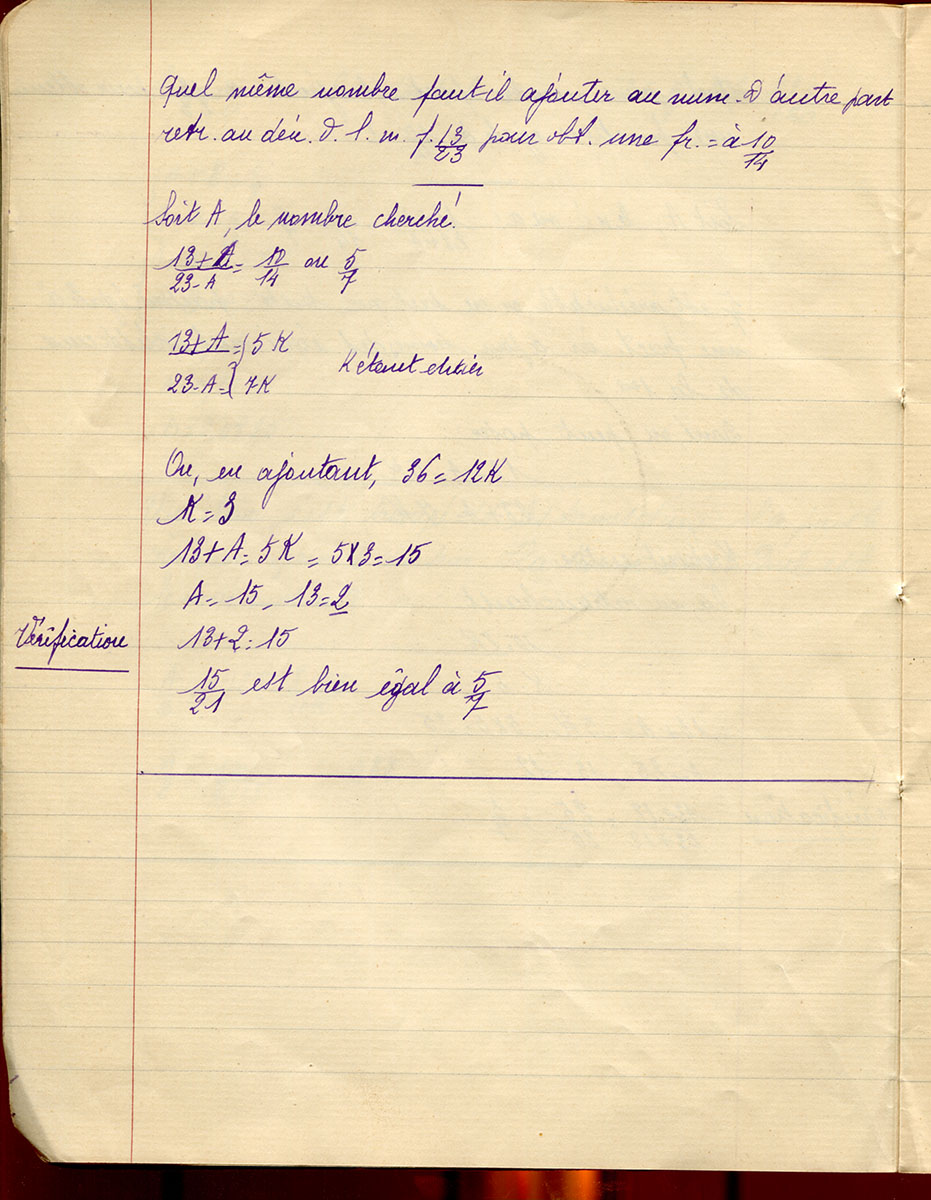 Quel même nombre faut il ajouter au num. D'autre part
retr. au dén. d. l. m. f. 13/23 pour obt. une fr. = à 10/14
Soit A, le nombre cherché.
13+A/23-A = 10/14 ou 5/7
13+A = 5K
K étant entier
23-A = 7K
Ou, en ajoutant, 36 = 12K
K = 3
13+A = 5K = 5x3 = 15
A = 15 - 13 = 2
Vérification
13+2 = 15
15/21 est bien égal à 5/7